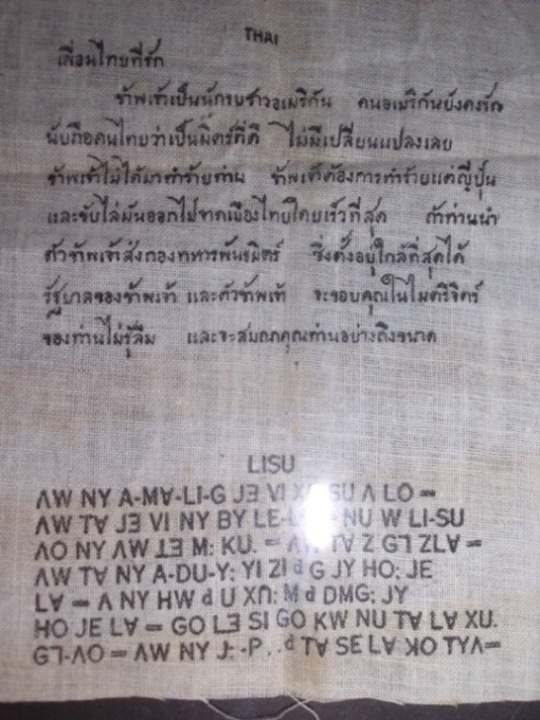 THAI
เพื่อนไทยที่รัก
ข้าพเจ้าเป็นนักรบชาวอเมริกัน คนอเมริกันยังคงรัก
นับถือคนไทยว่าเป็นมิตร์ที่ดี ไม่มีเปลี่ยนแปลงเลย
ข้าพเจ้าไม่ได้มาทำร้ายท่าน ข้าพเจ้าต้องการทำร้ายแต่ญี่ปุ่น
และขับไล่มันออกไปจากเมืองไทยโดยเร็วที่สุด ถ้าท่านนำ
ตัวข้าพเจ้าส่งกองทหารพันธมิตร์ ซึ่งตั้งอยู่ใกล้ที่สุดได้
รัฐบาลของข้าพเจ้า และตัวข้าพเจ้า จะขอบคุณในไมตรีจิตร์
ของท่านไม่รู้ลืม และจะสมณาคุณท่านอย่างถึงขนาด
LISU
ꓥꓪ ꓠꓬ ꓮ-ꓟꓯ-ꓡꓲ-ꓖ ꓙꓱ ꓦꓲ ꓢꓴ ꓥ ꓡꓳ =
ꓥꓪ ꓔꓯ ꓙꓱ ꓦꓲ ꓠꓬ ꓐꓬ ꓡꓰ- ꓠꓴ ꓪ ꓡꓲ-ꓢꓴ
ꓥꓳ ꓠꓬ ꓥꓪ ꓕꓱ ꓟ: ꓗꓴ. = ꓥꓪ ꓔꓯ ꓜ ꓖꓶ ꓜꓡꓯ =
ꓥꓪ ꓔꓯ ꓠꓬ ꓮ-ꓓꓴ-ꓬ: ꓬꓲ ꓜꓲ ꓒ ꓖ ꓙꓬ ꓧꓳ: ꓙꓰ
ꓡꓯ = ꓥ ꓠꓬ ꓧꓪ ꓒ ꓴ ꓫꓵ: ꓟ ꓒ ꓓꓟꓖ: ꓙꓬ
ꓧꓳ ꓙꓰ ꓡꓯ = ꓖꓳ ꓡꓱ ꓢꓲ ꓖꓳ ꓗꓪ ꓠꓴ ꓔꓯ ꓡꓯ ꓫꓴ.
ꓖꓶ-ꓥꓳ = ꓥꓪ ꓠꓬ ꓙ: -ꓑ.. ꓒ ꓔꓯ ꓢꓰ ꓡꓯ ꓘꓳ ꓔꓬꓥ=